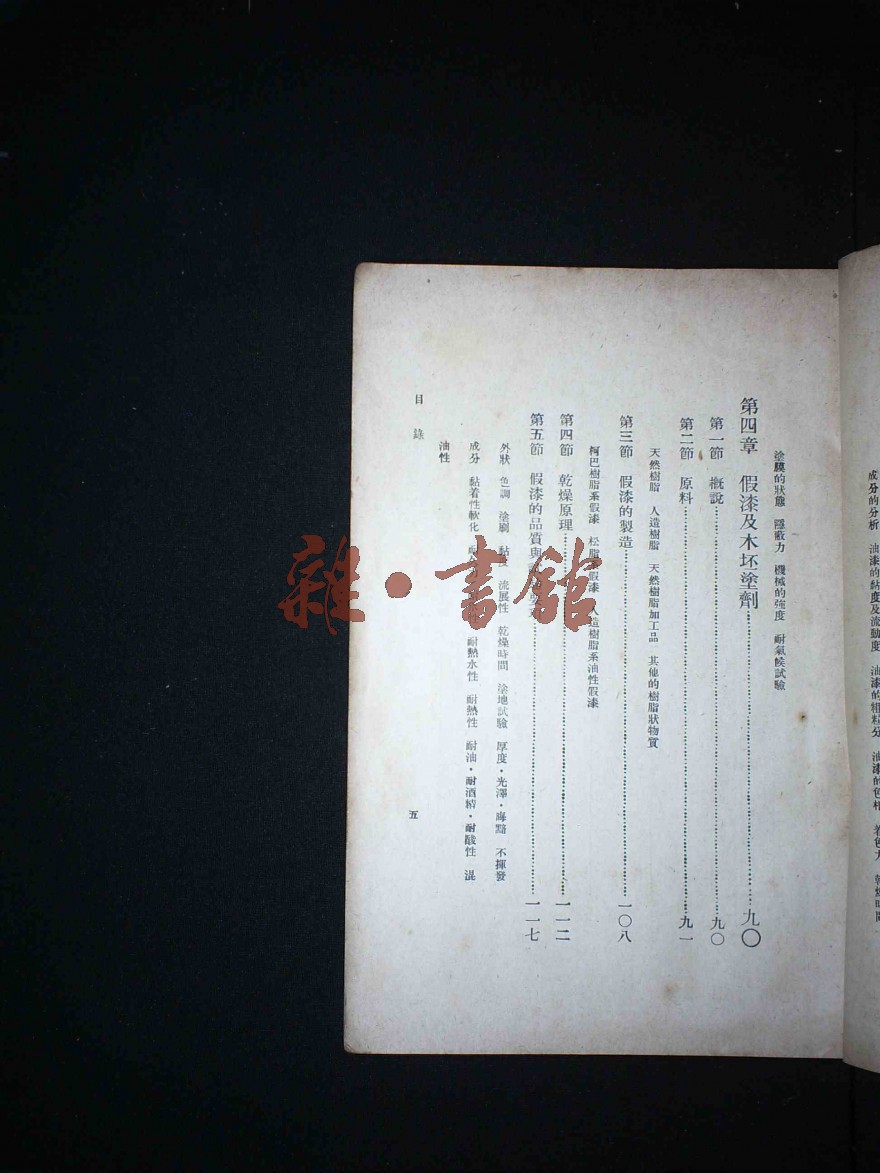 成分的分析　油漆的黏度及流動度　油漆的粗粒分　油漆的色相　着色力　乾燥時間
塗膜的狀態　隱蔽力　機械的强度　耐氣候試驗
第四章　假漆及木坯塗劑……九〇
第一節　概說……九〇
第二節　原料……九一
天然樹脂　人造樹脂　天然樹脂加工品　其他的樹脂狀物質
第三節　假漆的製造……一〇八
柯巴樹脂系假漆　松脂　假漆　人造樹脂系油性假漆
第四節　乾燥原理……一一二
第五節　假漆的品質與……一一七
外狀　色調　塗刷　黏度　流展性　乾燥時間　塗地試驗　厚度・光澤・晦黯　不揮發
成分　黏着性軟化　耐　耐熱水性　耐熱性　耐油・耐酒精・耐酸性　混
油性
目錄
五
雜・書館